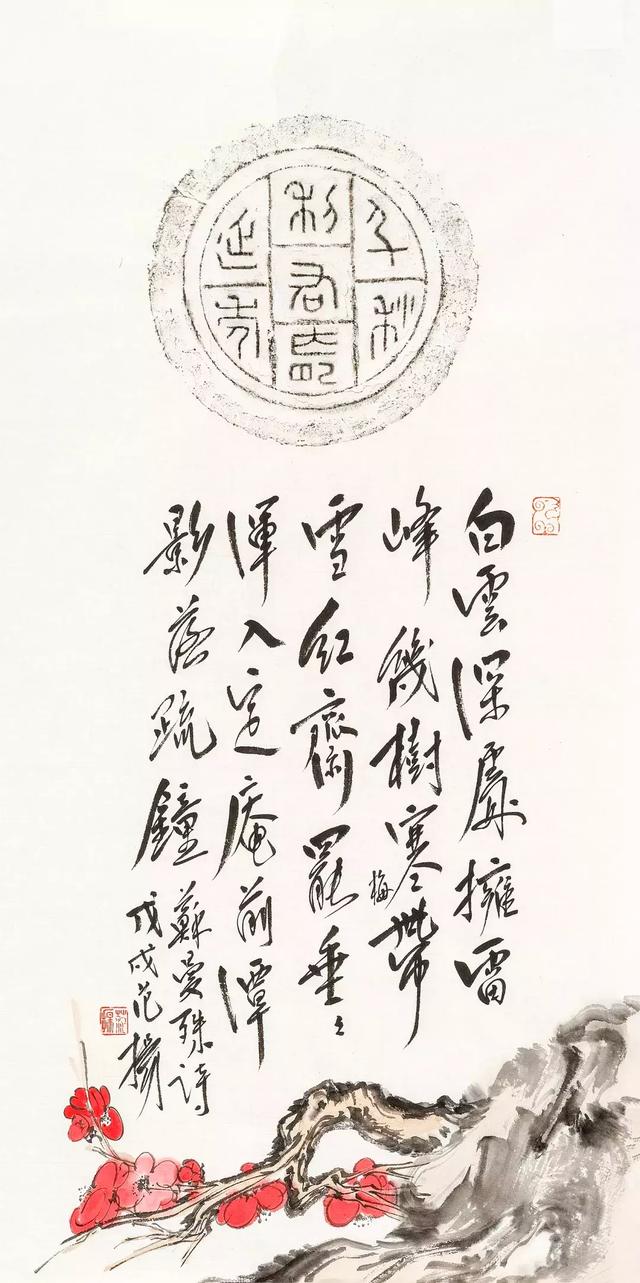 千秋
利君長
延年
白雲深處擁雷
峰幾樹寒梅帶
雪紅齋罷垂〻
渾入定庵前潭
影落疏鐘
蘇曼殊詩
戊戌范揚